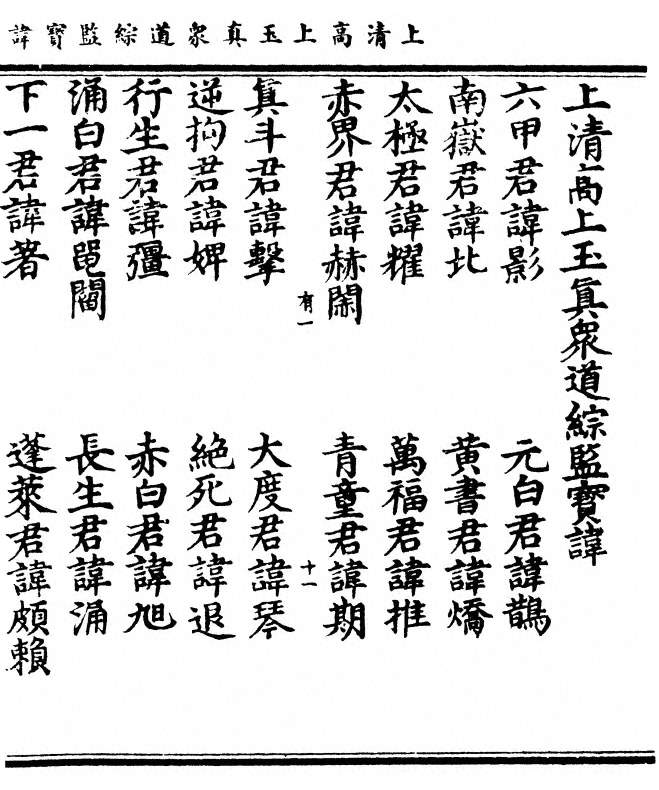 上清高上玉真衆道綜監寶諱
上清高上玉真衆道綜監寶諱
六甲君諱影 元白君諱鵲
南嶽君諱北 黄書君諱燆
太極君諱耀 萬福君諱推
赤界君諱赫閑 青童君諱期
有一 十一
真斗君諱擊 大度君諱琴
逆拘君諱婢 絶死君諱退
行生君諱彊 赤白君諱旭
涌白君諱邑閻 長生君諱涌
下一君諱著 蓬萊君諱頗賴